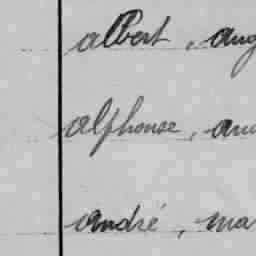 albert, aug
alphonse, au
andré, ma